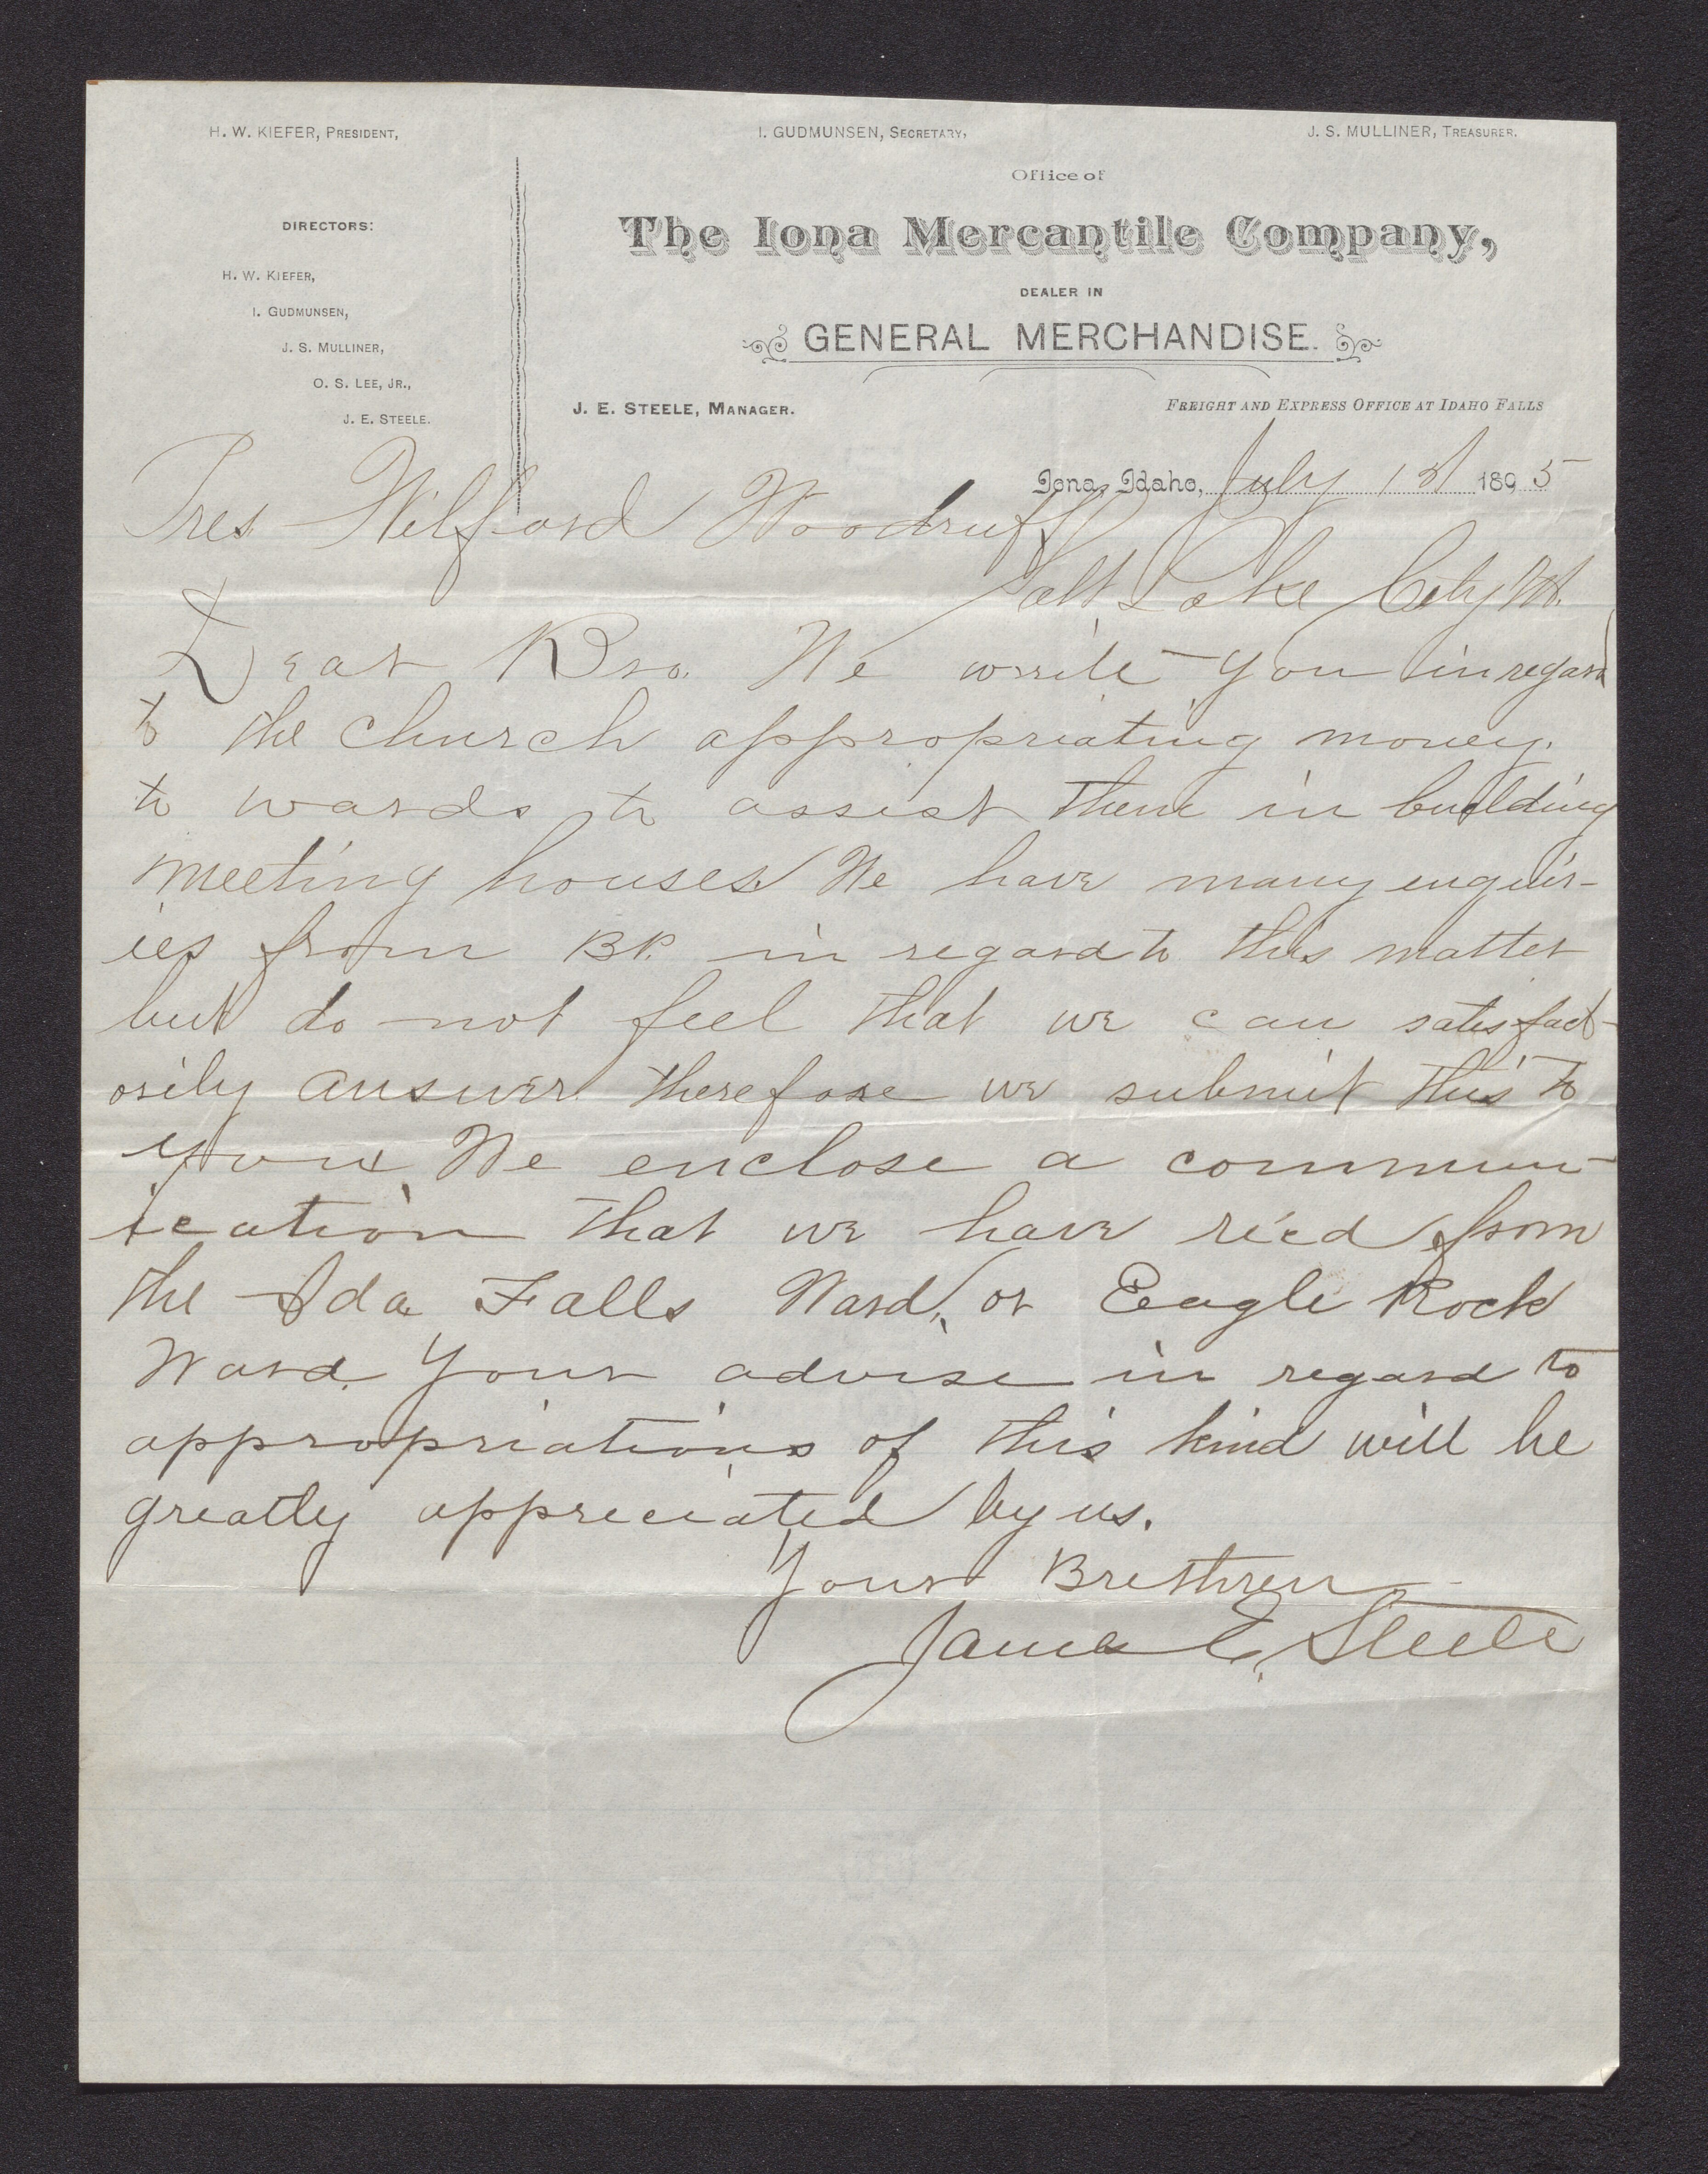 H. W. KIEFER, PRESIDENT,
I. GUDMUNSEN, SECRETARY,
J. S. MULLINER, TREASURER.
Office of
The Iona Mercantile Company,
DEALER IN
GENERAL MERCHANDISE.
DIRECTORS:
H. W. KIEFER,
I. GUDMUNSEN,
J. S. MULLINER,
O. S. LEE, JR.,
J. E. STEELE.
J. E. STEELE, MANAGER.
FREIGHT AND EXPRESS OFFICE AT IDAHO FALLS
Iona, Idaho, July 1st 1895
Pres Wilford Woodruff
Salt Lake City Ut.
Dear Bro. We write you in regard
to the church appropriating money.
to wards to assist them in building
meeting houses. We have many enquir-
ies from BP. in regard to this matter
but do not feel that we can satisfact-
orily answer therefore we submit this to
you. We enclose a commun-
ication that we have rec'd from
the Ida Falls Ward, or Eagle Rock
Ward. Your advise in regard to
appropriations of this kind will be
greatly appreciated by us.
Your Brethren
James E. Steele